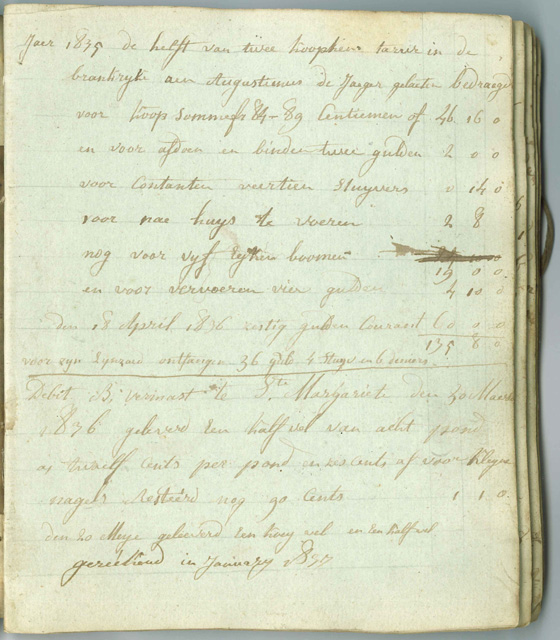 Jaer 1835 de helft van twee koophen tarrir in de
brantryke aen Augustinus de Jaeger gelaeten bedraegd
voor Koop Somme fr 84-89 Centiemen of 46 16 0
en voor afdoen en binden twee gulden 2 0 0
voor Contanten veertien stuyvers 0 14 0
voor nae huys te voeren 2 8
nog voor vyf eyken boomen
19 0 0
en voor vervoeren vier gulden 4 10 0
den 18 April 1836 zestig gulden Courant 60 0 0
135 8 0
voor zyn Lynzaed ontfaengen 36 guls 4 stuys en 6 deniers
Debit B. vermast te Ste Margariete den 30 Maerte
1836 geleverd Een half vel van acht pond
a twaelf cents per pond en zes cents af voor kleyne
nagels Resteerd nog 90 Cents 1 1 0
den 20 Meye geleeverd Een koey vel en Een half vel
gereekend in January 1837